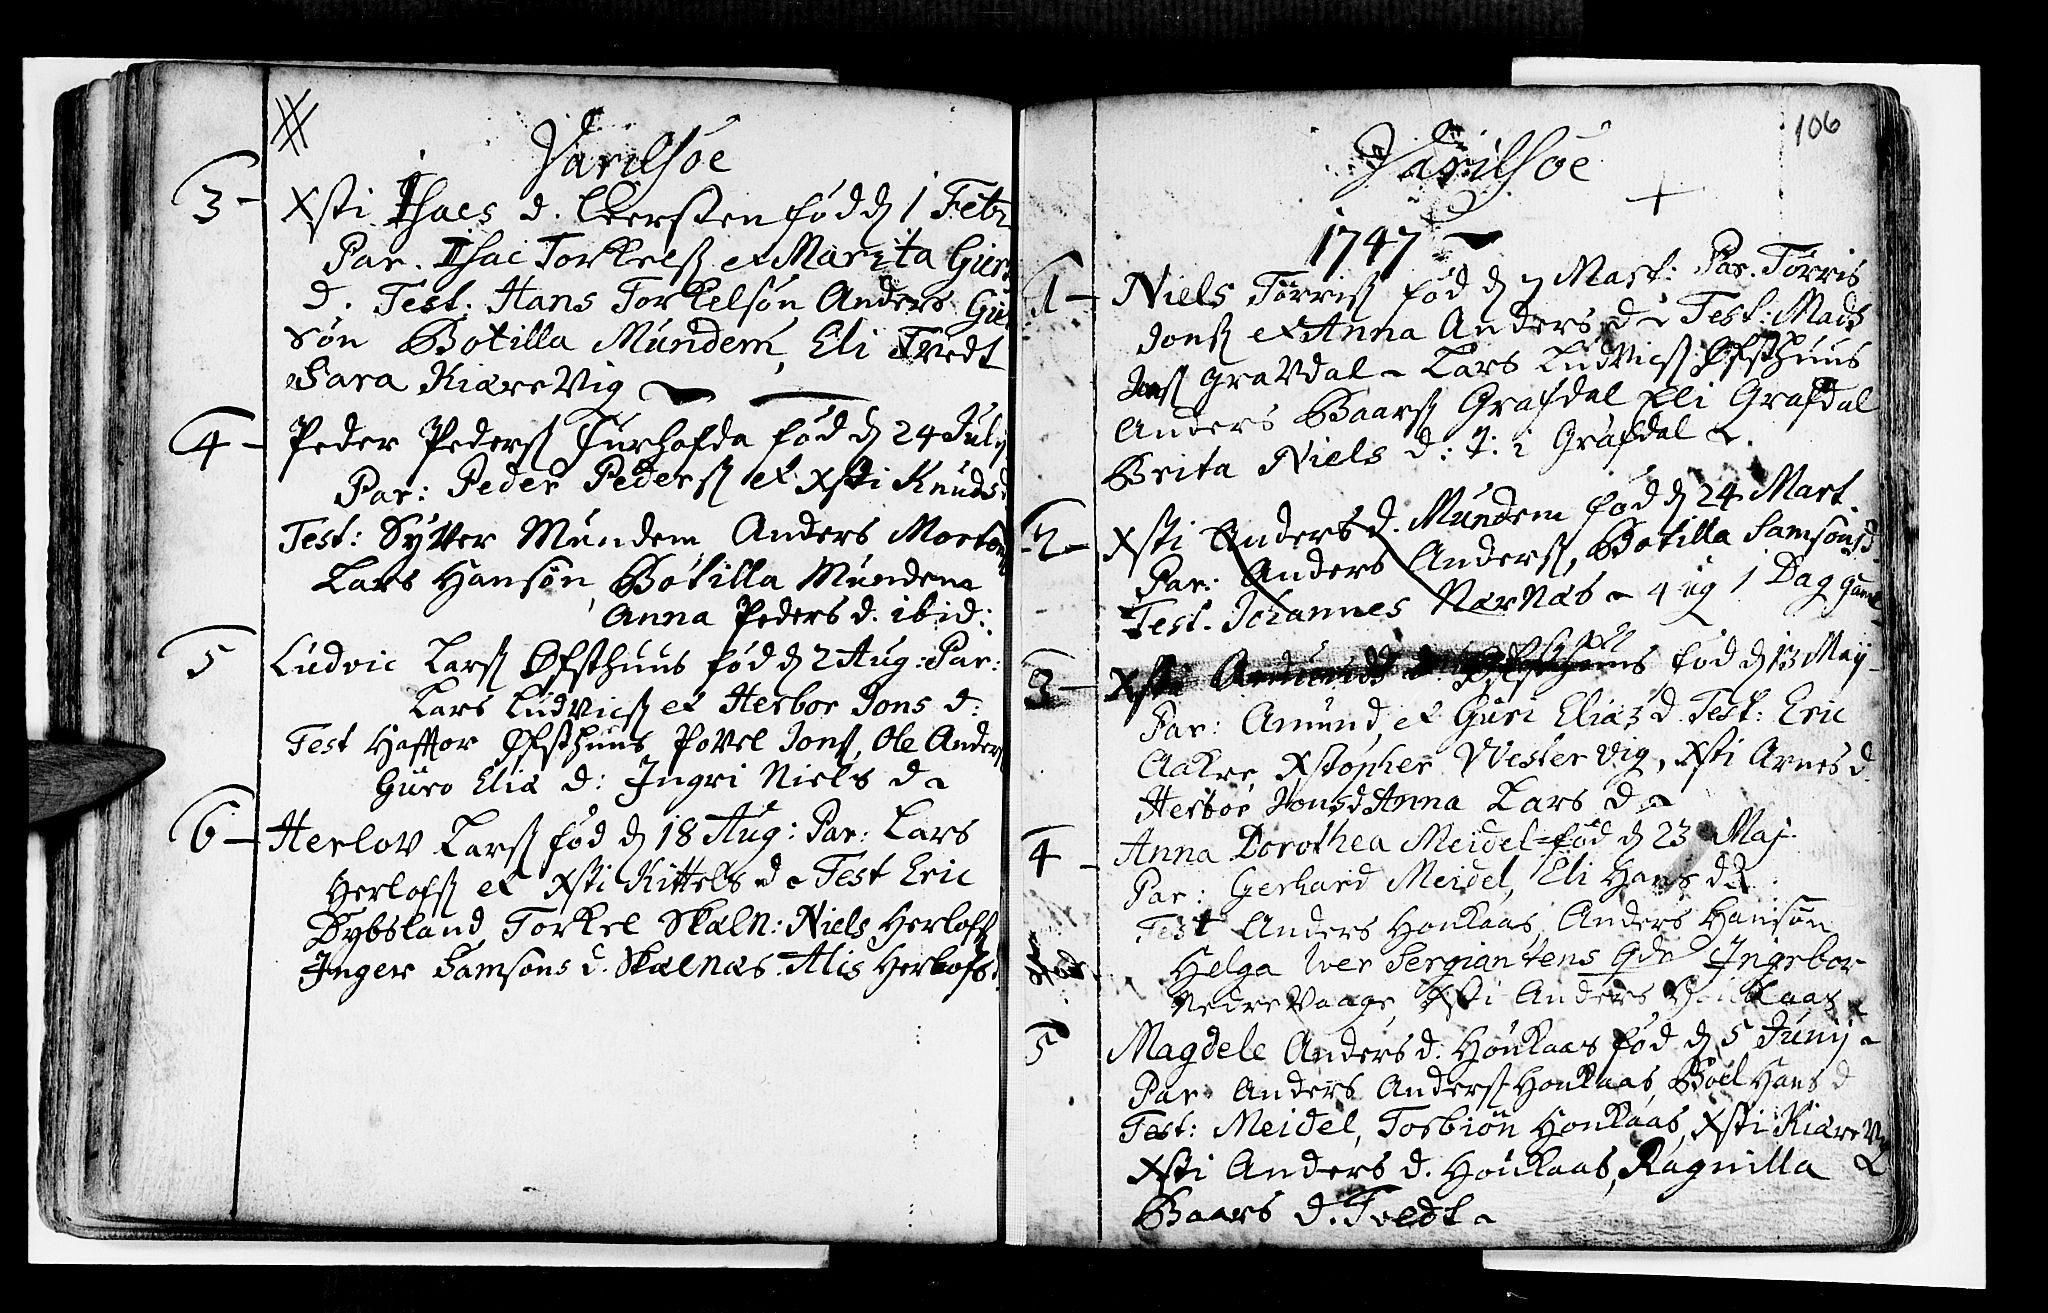 Varilsøe
3 - Xsti Isacs d. fød d 1 Febr
Par. Isac Torkels et Marita Giert
d. Test. Hans Torkelsøn Anders
søn Botilla Mundem, Eli Tvedt
Sara Kiærevig
4 - Peder Peders fød d 24 July
Par: Peder Peders et Xsti Knuds d
Test: Syver Mundem Anders Mortons
Lars Hansøn, Botilla Mundem
Anna Peders d. ibid:
5 Ludvic Lars Øfsthuus fød d 2 Aug: Par:
Lars Ludvics et Herbor Jons d:
Test Haftor Øfsthuus, Povel Jons, Ole Anders
Guro Eliæ d: Ingri Niels d
6 - Herlov Lars fød d 18 Aug: Par: Lars
Herlofs et Xsti Kittels d - Test Eric
Dybsland Torkel Skæln: Niels Herlofs
Inger Samsons d. Skælnæs. Alis Herlofs d.
106
Varilsøe
1747
1 - Niels Tørris fød d 7 Mart: Par. Tørris
Jons et Anna Anders d - Test: Mads
Jons Gravdal - Lars Ludvics Øfsthuus
Anders Baars Grafdal Eli Grafdal
Brita Niels d: i Grafdal
2 - Xsti Anders d. Mundem fød d 24 Mart.
Par: Anders Anders, Botilla Samsons d.
Test. Johannes Nærnæs - 4 ug 1 Dag gamel
3 - Xsti Amunds d. fød d 13 Maij
Par: Amund, et Guri Elias d. Test: Eric
Aakre Xstopher Westervig, Xsti Arnes d.
Herbor Jons d Anna Lars d
4 - Anna Dorothea Meidel fød d 23 Maj
Par: Gerhard Meidel, Eli Hans d
Test Anders Houkaas, Anders Hansøn
Helga Iver Sergiantens Qde Ingebor
Nedrevaage, Xsti Anders Houkaas
5 Magdele Anders d. Høukaas fød d 5 Junij
Par: Anders Anders Houkaas, Boel Hans d
Test: Meidel, Torbiøn Houkaas, Xsti Kiærevi
Xsti Anders d. Høukaas, Ragnilla
Baars d. Tvedt